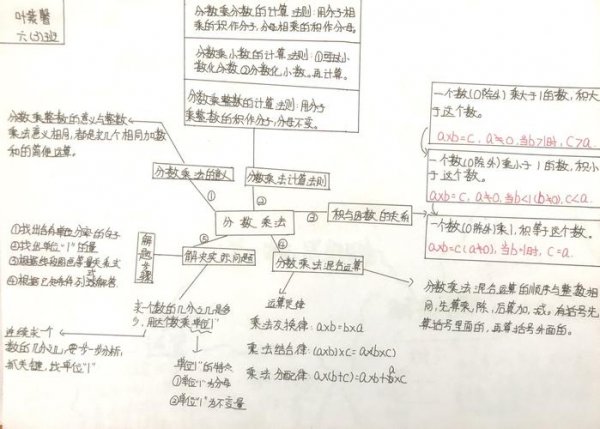 叶装馨
六(3)班
分数乘分数的计算法则:用分子相
乘的积作分子,分母相乘的积作分母。
分数乘小数的计算法则:①可把小
数化分数②分数化小数。再计算。
分数乘整数的计算法则:用分子
乘整数的积作分子,分母不变。
分数乘整数的意义与整数
乘法意义相同,都是求几个相同加数
和的简便运算。
分数乘法的意义
①
分数乘法计算法则
②
分数乘法
③
积与因数的关系
一个数(0除外)乘大于1的数,积大
于这个数。
a×b=c,a≠0,当b>1时,c>a.
一个数(0除外)乘小于1的数,积小
于这个数。
a×b=c,a≠0,当b<1(b≠0),c<a.
一个数(0除外)乘1,积等于这个数。
a×b=c(a≠0),当b=1时,c=a.
④
分数乘法混合运算
分数乘法混合运算的顺序与整数相
同,先算乘、除,后算加、减。有括号先
算括号里面的,再算括号外面的。
运算定律
乘法交换律:a×b=b×a
乘法结合律:(a×b)×c=a×(b×c)
乘法分配律:a×(b+c)=a×b+a×c
⑤
解决实际问题
解题步骤
①找出含有单位分率的句子
②找出单位"1"的量
③根据线段图写等量关系式
④根据已知条件列式解答
求一个数的几分之几是多
少,用这个数乘单位"1"
连续求一个
数的几分之几,要一步一步分析,
抓关键,找单位"1"
单位"1"的特点
①单位"1"为分母
②单位"1"为不变量